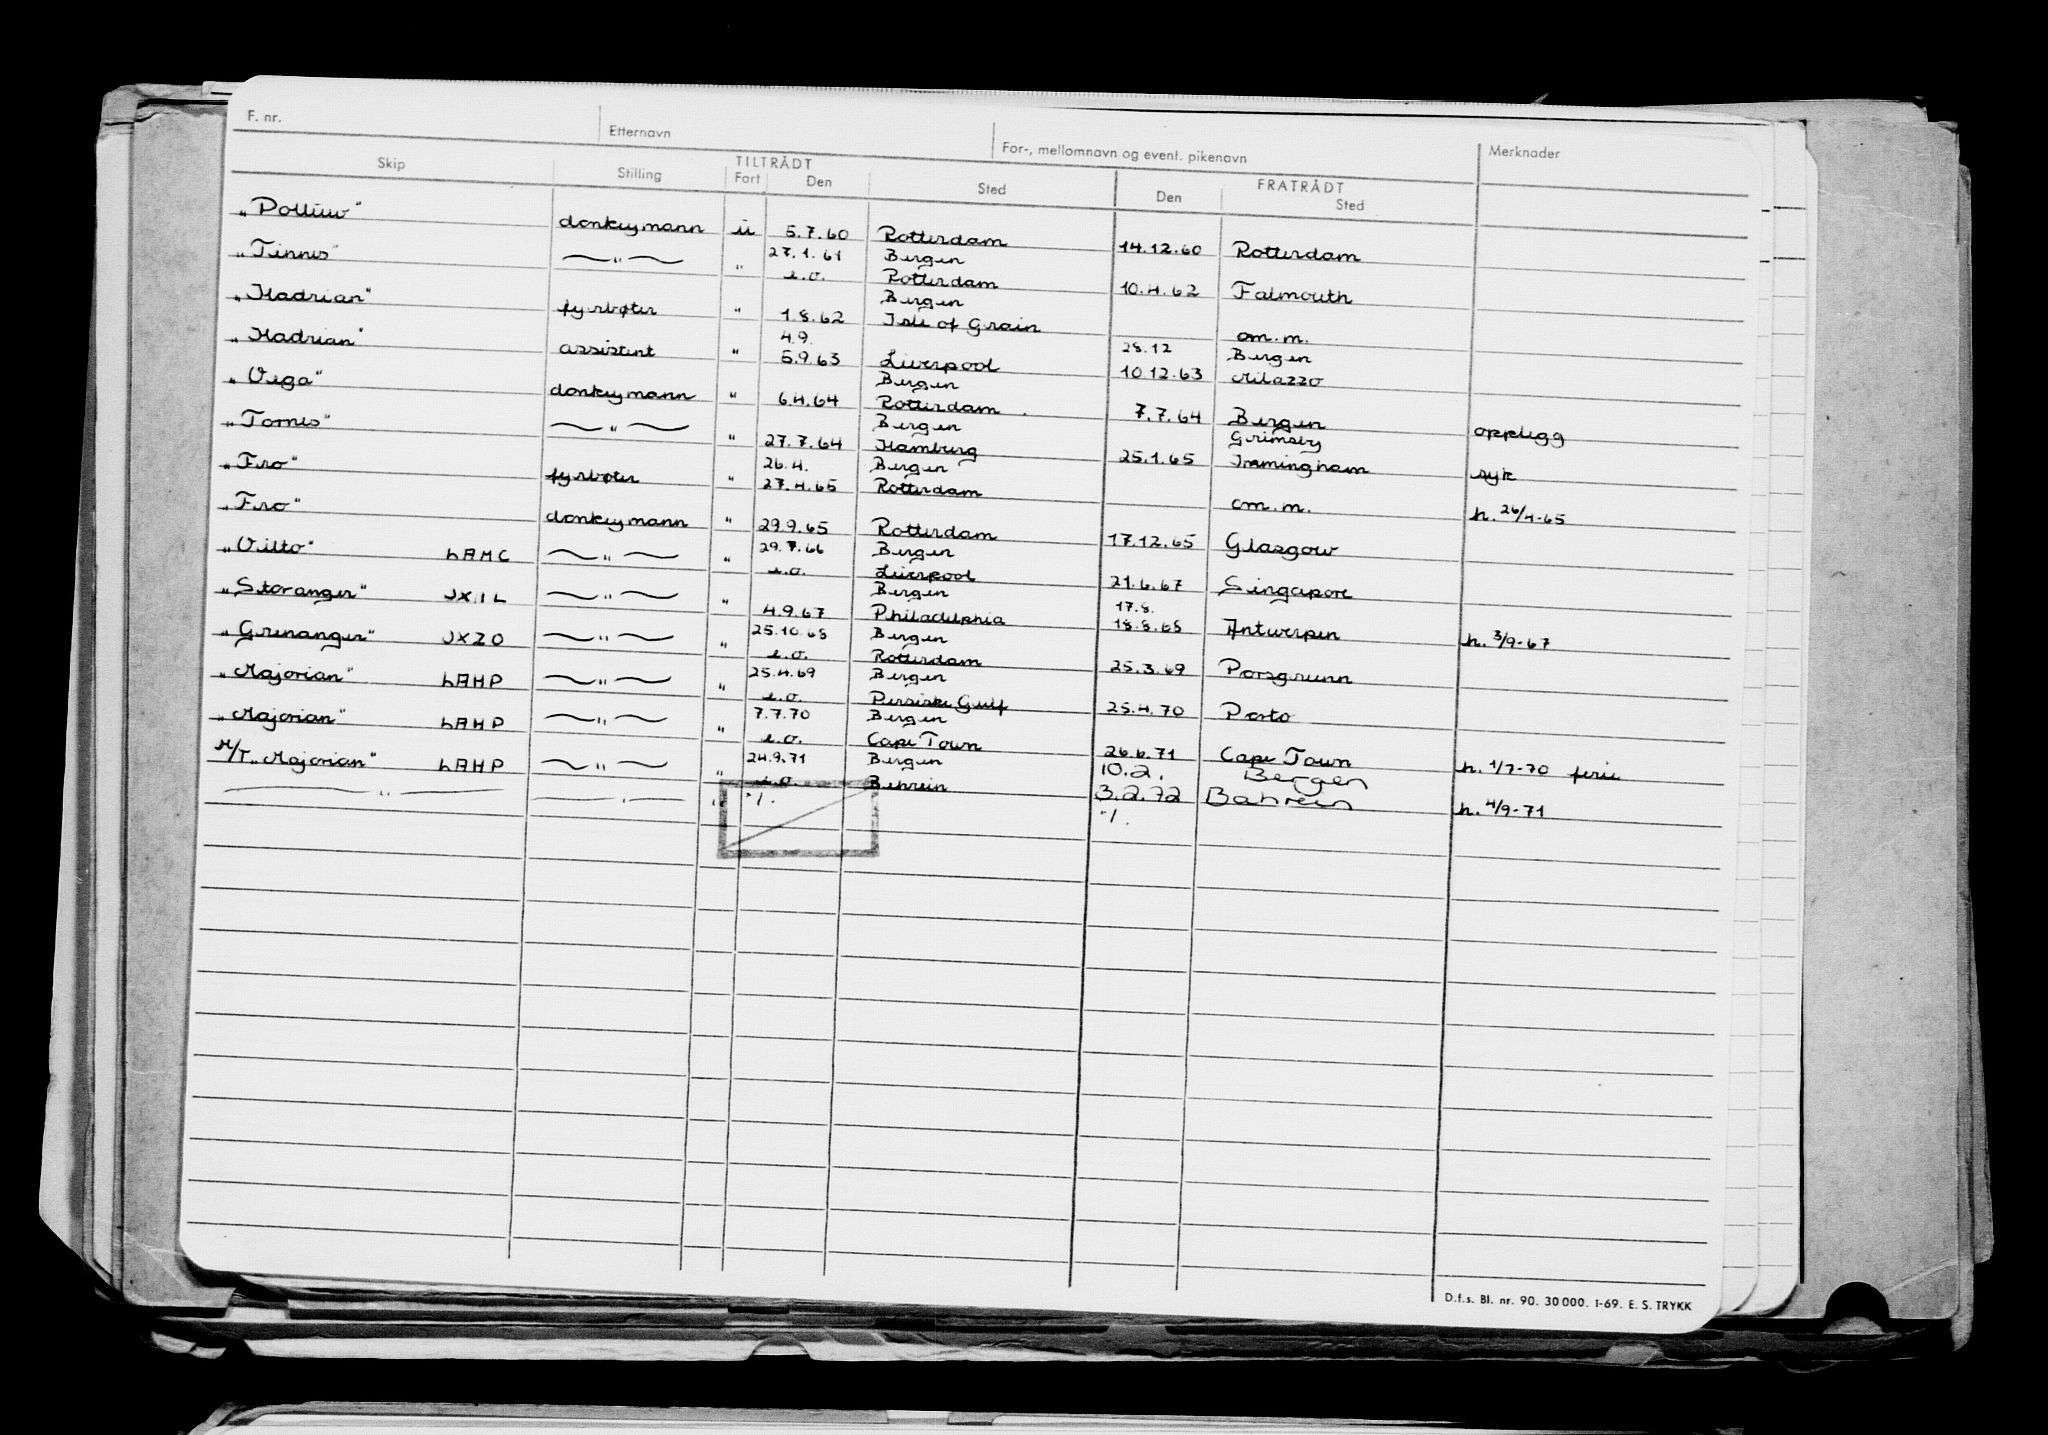 F. nr. Etternavn For-, mellomnavn og event. pikenavn Merknader
TILTRÅDT FRATRÅDT
Skip Stilling Fart Den Sted Den Sted
"Pollux" donkeymann u 5.7.60 Rotterdam 14.12.60 Rotterdam
27.1.61 Bergen
"Tinnes" — " — " e.o. Rotterdam 10.4.62 Falmouth
Bergen
"Hadrian" fyrbøter " 1.8.62 Isle of Grain om.m.
4.9. 28.12 Bergen
"Hadrian" assistent " 5.9.63 Liverpool 10.12.63 Milazzo
Bergen
"Vega" donkeymann " 6.4.64 Rotterdam 7.7.64 Bergen opplegg
Bergen Grimsby
"Tornes" — " — " 27.7.64 Hamburg 25.1.65 Immingham syk
26.4. Bergen
"Fro" fyrbøter " 27.4.65 Rotterdam om.m. h. 26/4-65
"Fro" donkeymann " 29.9.65 Rotterdam 17.12.65 Glasgow
29.7.66 Bergen
"Vilto" LAMC — " — " e.o. Liverpool 21.6.67 Singapore
Bergen 17.8.
"Storanger" JXIL — " — " 4.9.67 Philadelphia 18.8.68 Antwerpen h. 3/9-67
25.10.68 Bergen
"Grenanger" JXZO — " — " e.o. Rotterdam 25.3.69 Porsgrunn
25.4.69 Bergen
"Majorian" LAHP — " — " e.o. Persiske Gulf 25.4.70 Porto
7.7.70 Bergen
"Majorian" LAHP — " — " e.o. Cape Town 26.6.71 Cape Town h. 1/7-70 ferie
24.9.71 Bergen 10.2. Bergen
M/T "Majorian" LAHP — " — " e.o. Behrein 3.2.72 Bahrein h. 4/9-71
— " — — " — " -/. -/.
D.f.s. Bl. nr. 90. 30 000. 1-69. E. S. TRYKK